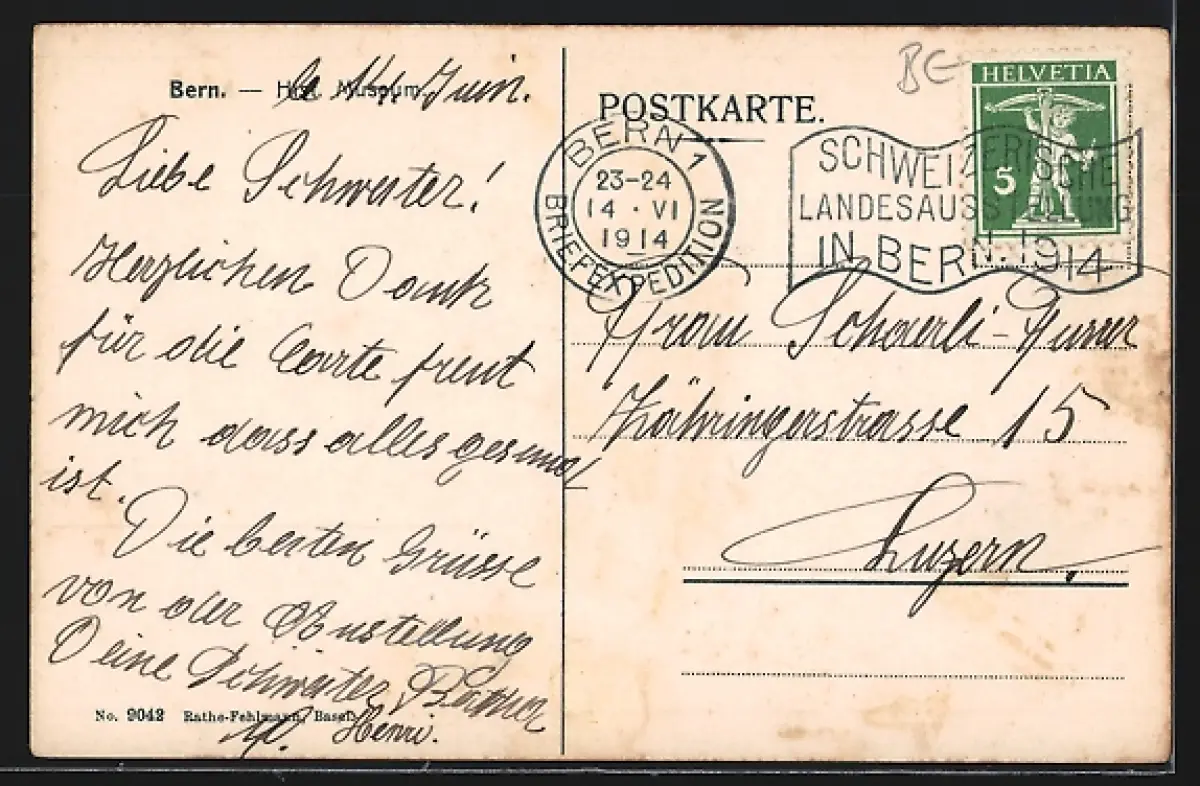 Bern. — Hist. Museum.
14. Juin.
Liebe Schwester!
Herzlichen Dank
für die Carte freut
mich dass alles gesund
ist.
Die besten Grüsse
von der Austellung
Deine Schwester
Henri.
No. 9042 Rathe-Fehlmann, Basel.
POSTKARTE.
BE
HELVETIA
5
BERN 1
23-24
14 · VI
1914
BRIEFEXPEDITION
SCHWEIZERISCHE
LANDESAUSSTELLUNG
IN BERN. 1914
Frau Schaerli-
Zähringerstrasse 15
Luzern.